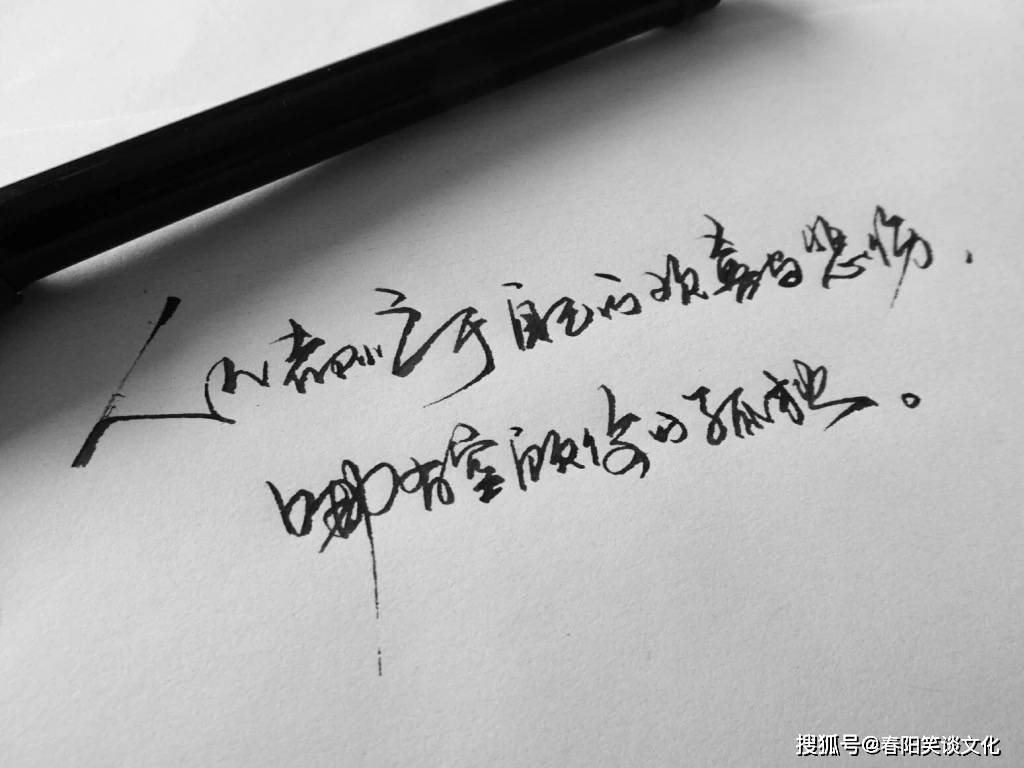 人们都忙于自己的欢喜与悲伤，
哪有空顾你的孤独。
搜狐号@春阳笑谈文化